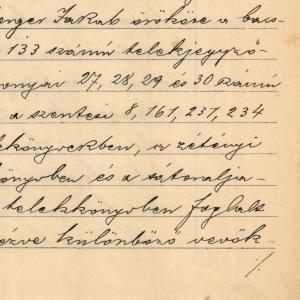 enger Jakab örököse a bacs-
133 számú telekjegyző-
onyai 27, 28, 29 és 30 számú
a szentesi 8, 161, 231, 234
ekönyvekben, a zétényi
könyvben és a sátoralja-
telekkönyvben foglalt
ézve különböző vevők-
./.